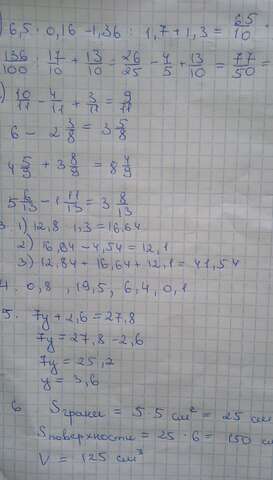 ) 6,5 · 0,16 - 1,36 : 1,7 + 1,3 = 65/10 ·
136/100 : 17/10 + 13/10 = 26/25 - 4/5 + 13/10 = 77/50 =
) 10/11 - 4/11 + 3/11 = 9/11
6 - 2 3/8 = 3 5/8
4 5/9 + 3 8/9 = 8 4/9
5 6/13 - 1 11/13 = 3 8/13
3. 1) 12,8 · 1,3 = 16,64
2) 16,64 - 4,54 = 12,1
3) 12,84 + 16,64 + 12,1 = 41,54
4. 0,8, 19,5, 6,4, 0,1
5. 7y + 2,6 = 27,8
7y = 27,8 - 2,6
7y = 25,2
y = 3,6
6 Sграни = 5·5 см² = 25 см
Sповерхности = 25 · 6 = 150 см
V = 125 см³